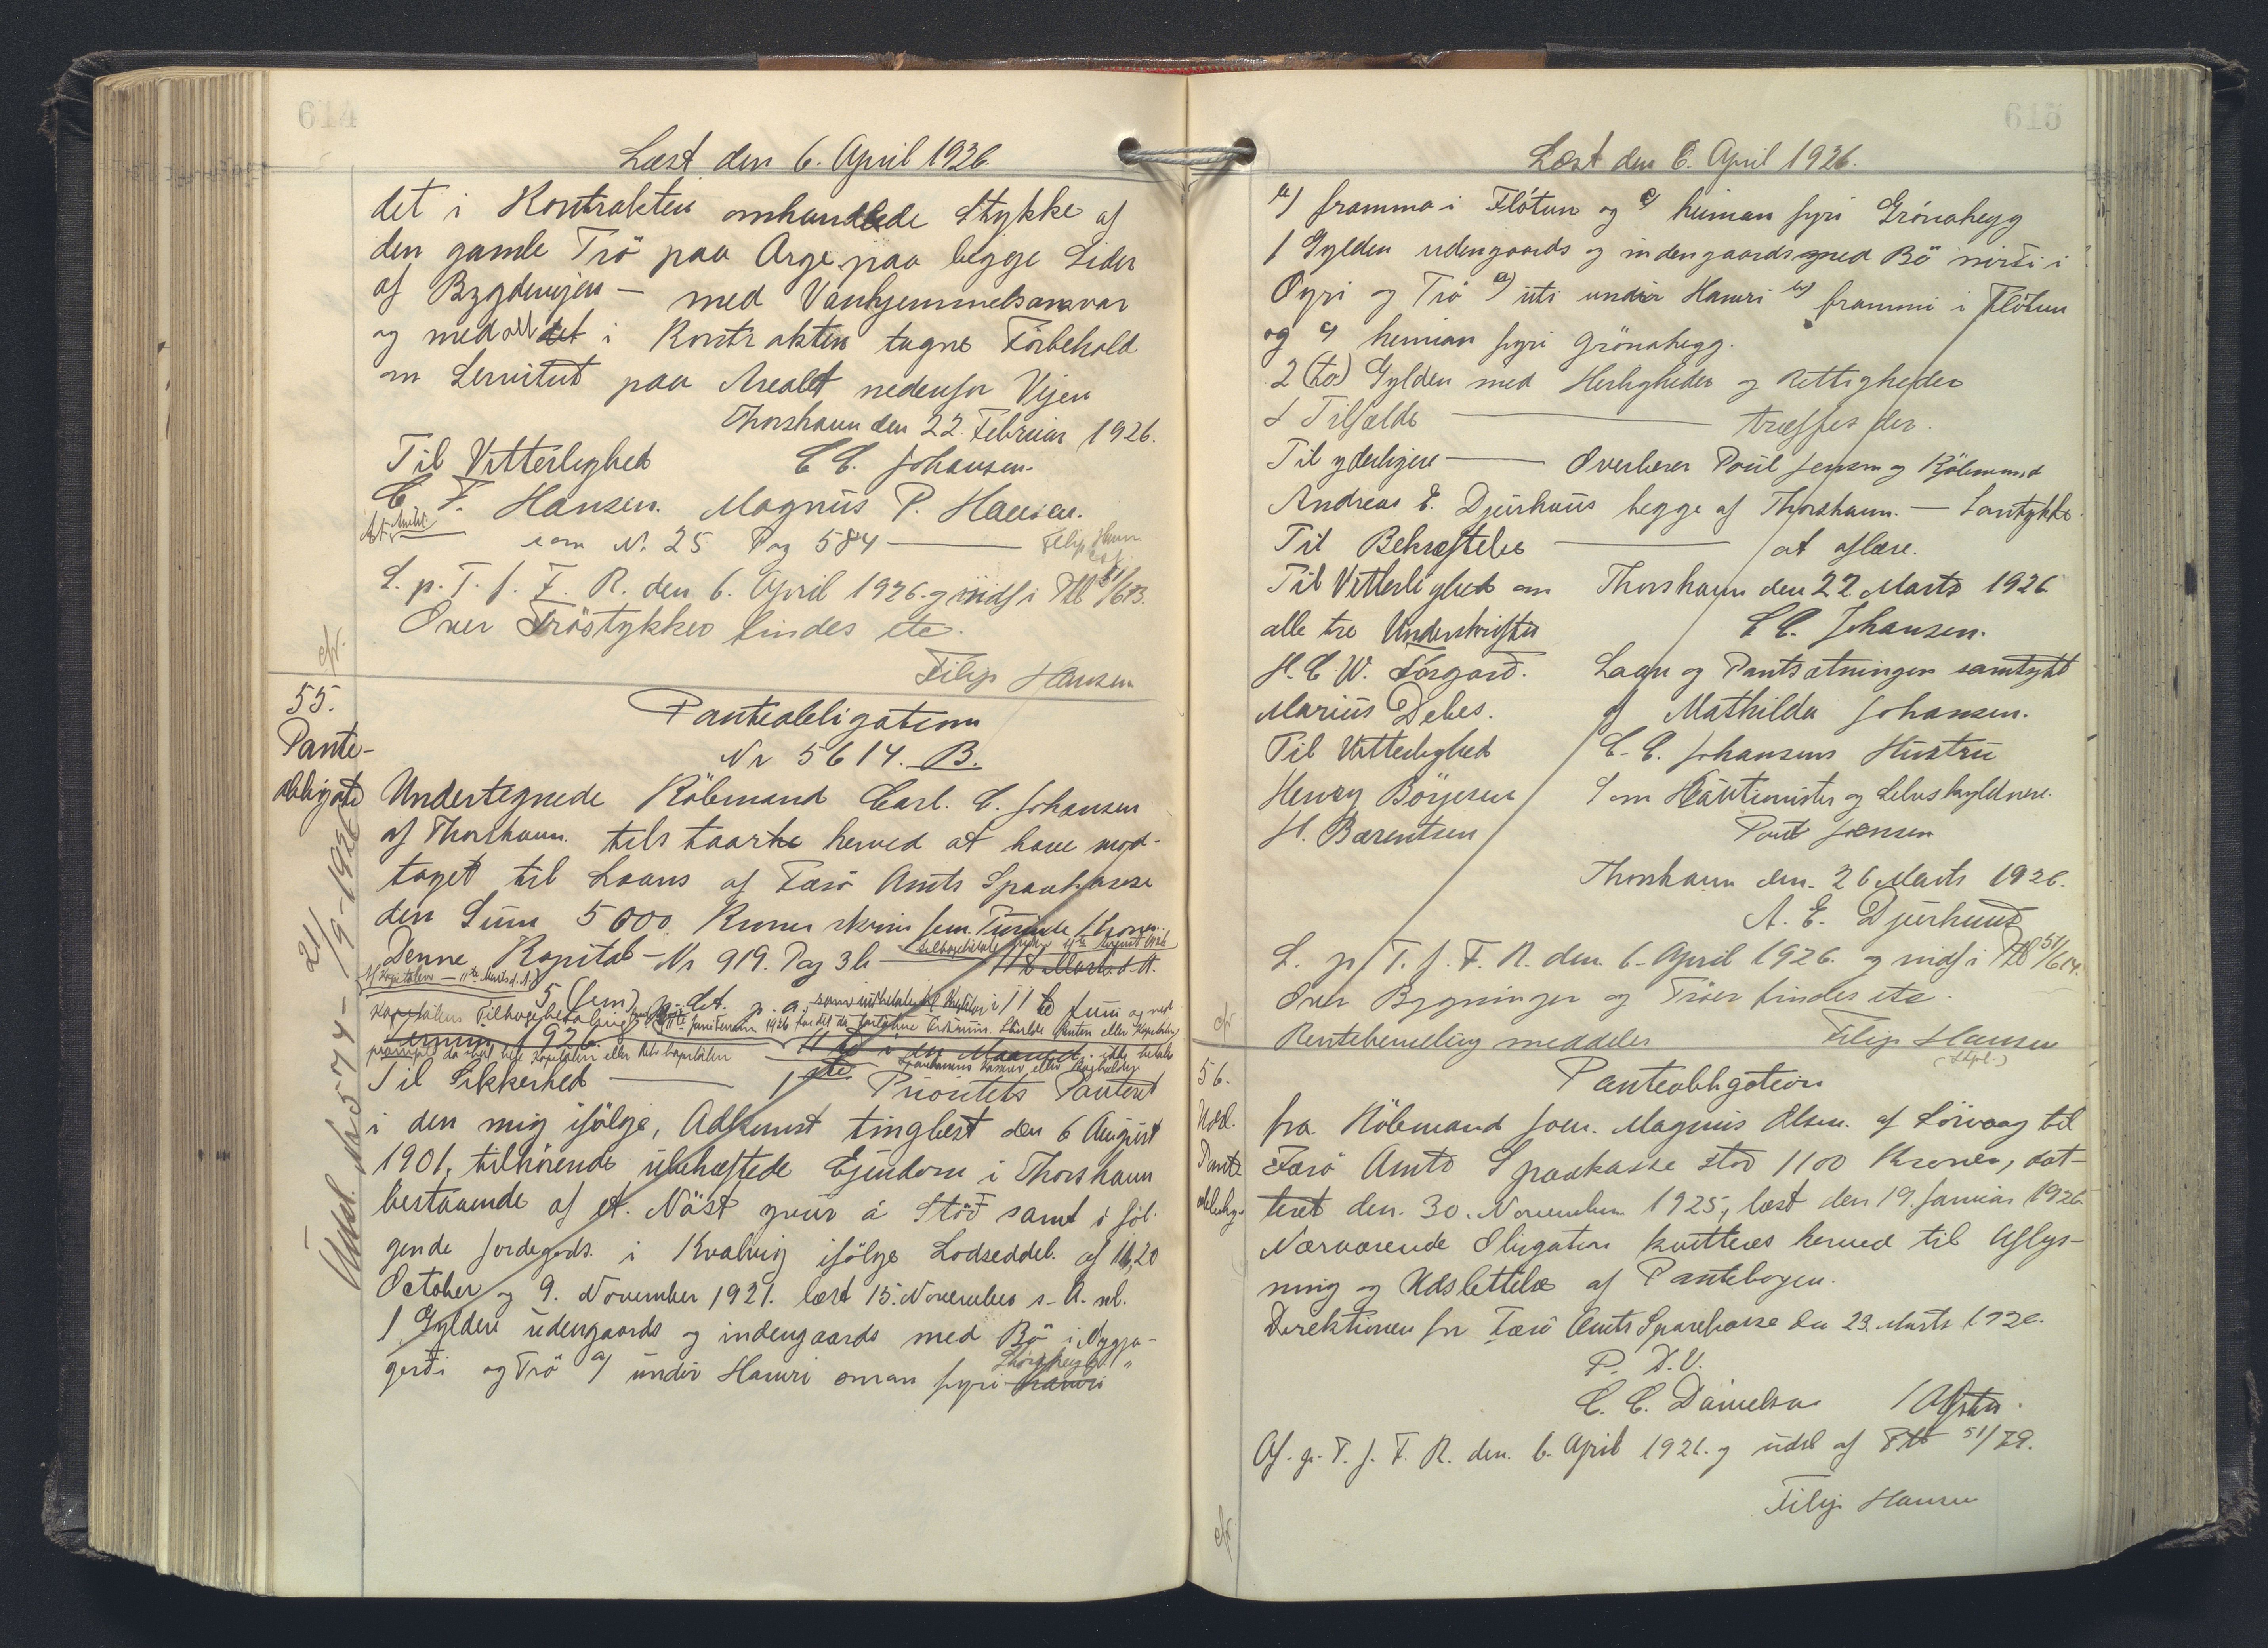 614
Læst den 6. April 1926
det i Kontrakten omhandlede Stykke af
den gamle Trö paa Arge paa begge Sider
af Bygdevejen — med Vanhjemmelsansvar
og med alt det i Kontrakten tagne Forbehold
om Servitut paa Arealet nedenfor Vejen
Thorshavn den 22. Februar 1926.
Til Vitterlighed C. C. Johansen.
C. F. Hansen. Magnus P. Hansen.
som Nr. 25 Pag 584 — Filip Hansen
L. p. T. f. F. R. den 6. April 1926 og indf i Ptb 51/613.
Over Tröstykker findes etc.
Filip Hansen
cfr.
55.
Pante-
obligation
Panteobligation
Nr 5614. B.
Undertegnede Köbmand Carl. C. Johansen
af Thorshavn. tilstaar herved at have mod-
taget til Laans af Færö Amts Sparekasse
den Sum 5000 Kroner skriver fem Tusinde Kroner.
Denne Kapital — Nr 919. Pag 36 — 11 te Marts d. A.
5 (fem) pCt. p. a. 11 te Juni og
Kapitalens Tilbagebetaling
Termin 1926
11 te i den Maaned. ikke betales
prompt da skal hele Kapitalen eller Restkapitalen
Til Sikkerhed — 1 ste Prioritets Panteret
i den mig ifölge, Adkomst tinglæst den 6 August
1901, tilhörende ubehæftede Ejendom i Thorshavn
bestaaende af et. Nöst yvir á Stöð samt i föl-
gende Jordegods. i Kvalvig ifölge Lodseddel. af 16, 20
October og 9. November 1921. læst 15. November s. A. nl.
1 Gylden udengaards og indengaards med Bö i Nyggja-
gerði og Trö a/ undir Hamri oman fyri Hamri
Udsl. Nr 574 — 21/9-1926
615
Læst den 6. April 1926.
b/ framma i Flötun og c/ heiman fyri Grönahegg
1 Gylden udengaards og indengaards med Bö nirði i
Oyri og Trö a/ úti undir Hamri b/ frammi i Flötun
og c/ heiman fyri Grönahegg.
2 (to) Gylden med Herligheder og Rettigheder
I Tilfælde — træffes der.
Til yderligere — Overlærer Poul Jensen og Köbmand
Andreas E. Djurhuus begge af Thorshavn. — Samtykke.
Til Bekræftelse — at aflæse.
Til Vitterlighed om Thorshavn den 22 Marts 1926
alle tre Underskrifter C. C. Johansen.
H. C. W. Tórgarð. Laan og Pantsætningen samtykt
Marius Debes. af Mathilda Johansen.
Til Vitterlighed C. C. Johansens Hustru
Henry Börjesen Som Kautionister og Selvskyldnere.
H. Bærentsen Poul Jensen
Thorshavn den. 26 Marts 1926.
A. E. Djurhuus
L. p. T. f. F. R. den 6. April 1926. og indf i Ptb 51/614.
Over Bygninger og Tröer findes etc.
Rentehemeling meddeles Filip Hansen
(Stpl.)
cfr
56.
Udsl.
Pante
obligation
Panteobligation
fra Köbmand Joen. Magnus Olsen. af Sörvaag til
Færö Amts Sparekasse stor 1100 Kroner, dat-
teret den. 30. November 1925, læst den 19. Januar 1926
Nærværende Obligation kvitteres herved til Aflys-
ning og Udslettelse af Pantebogen.
Direktionen for Færö Amts Sparekasse den 23. Marts 1926.
P. D. V.
C. C. Danielsen
Af. p. T. f. F. R. den. 6. April 1926. og udsl af Ptb 51/79.
Filip Hansen
cfr.